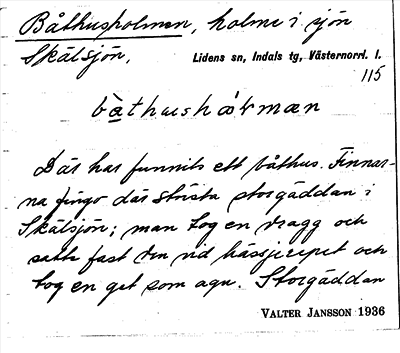 Båthusholmen, holme i sjön
Skälsjön,
Lidens sn, Indals tg, Västernorrl. l.
115
bàthushórmæn
Där har funnits ett båthus. Finnar-
na fingo där största storgäddan i
Skälsjön; man tog en dragg och
satte fast den vid hässjerepet och
tog en get som agn. Storgäddan
VALTER JANSSON 1936